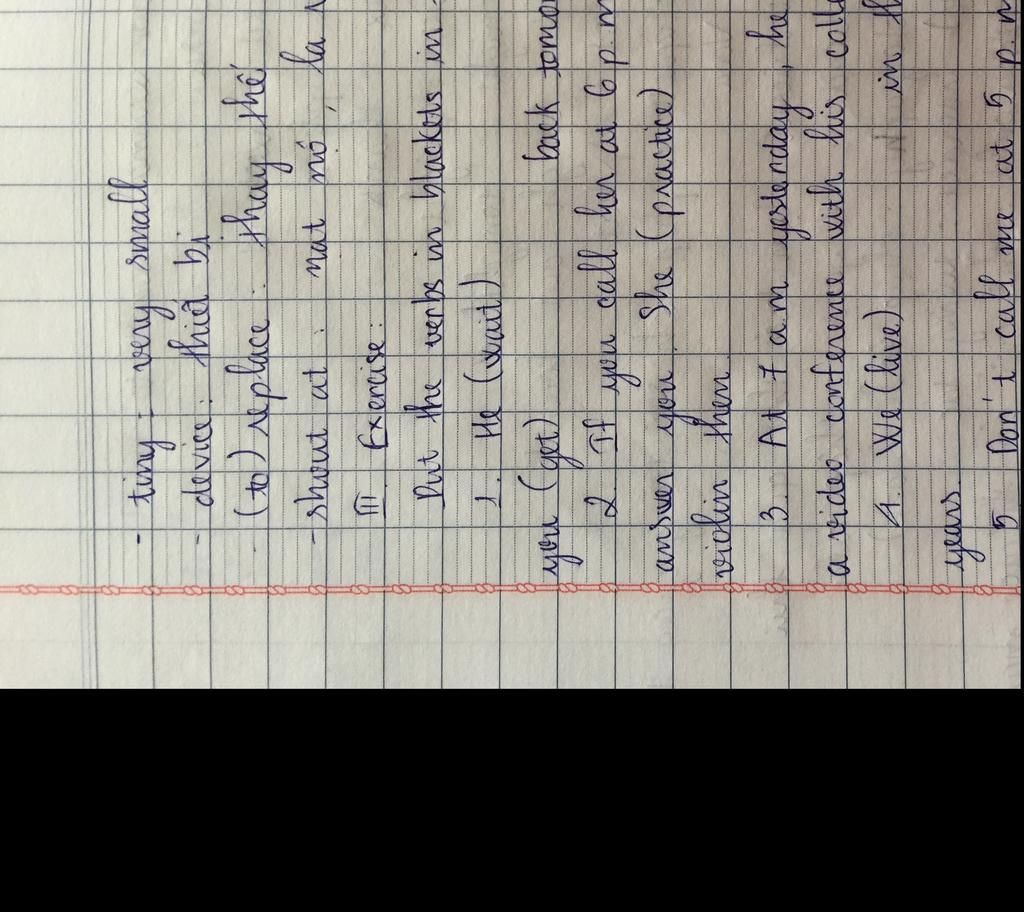 - tiny = very small
- device : thiết bị
- (to) replace : thay thế
- shout at : nạt nộ, la
III. Exercise:
Put the verbs in blackets in
1. He (wait)
you (get) back
2. If you call her at 6 p.m
answer you. She (practice)
violin then.
3. At 7 a.m yesterday, he
a video conference with his
4. We (live) in
years.
5. Don't call me at 5 p.m